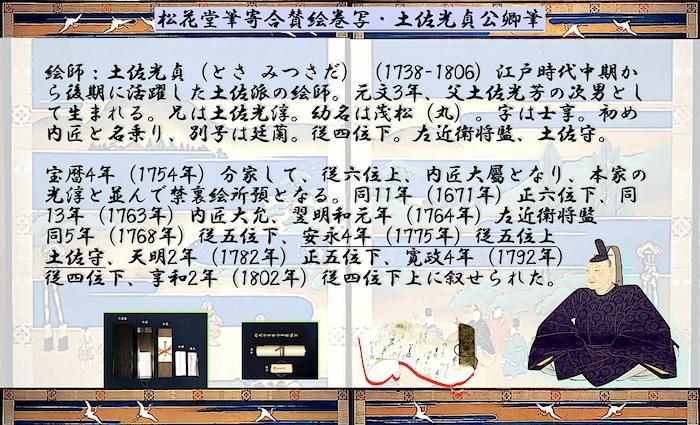 松花堂筆寄合賛絵巻写・土佐光貞公卿筆
絵師：土佐光貞（とさ みつさだ）（1738-1806）江戸時代中期か
ら後期に活躍した土佐派の絵師。元文3年、父土佐光芳の次男とし
て生まれる。兄は土佐光淳。幼名は茂松（丸）。字は士享。初め
内匠と名乗り、別号は廷蘭。従四位下。左近衛将監、土佐守。
宝暦4年（1754年）分家して、従六位上、内匠大属となり、本家の
光淳と並んで禁裏絵所預となる。同11年（1671年）正六位下、同
13年（1763年）内匠大允、翌明和元年（1764年）左近衛将監
同5年（1768年）従五位下、安永4年（1775年）従五位上
土佐守、天明2年（1782年）正五位下、寛政4年（1792年）
従四位下、享和2年（1802年）従四位下上に叙せられた。